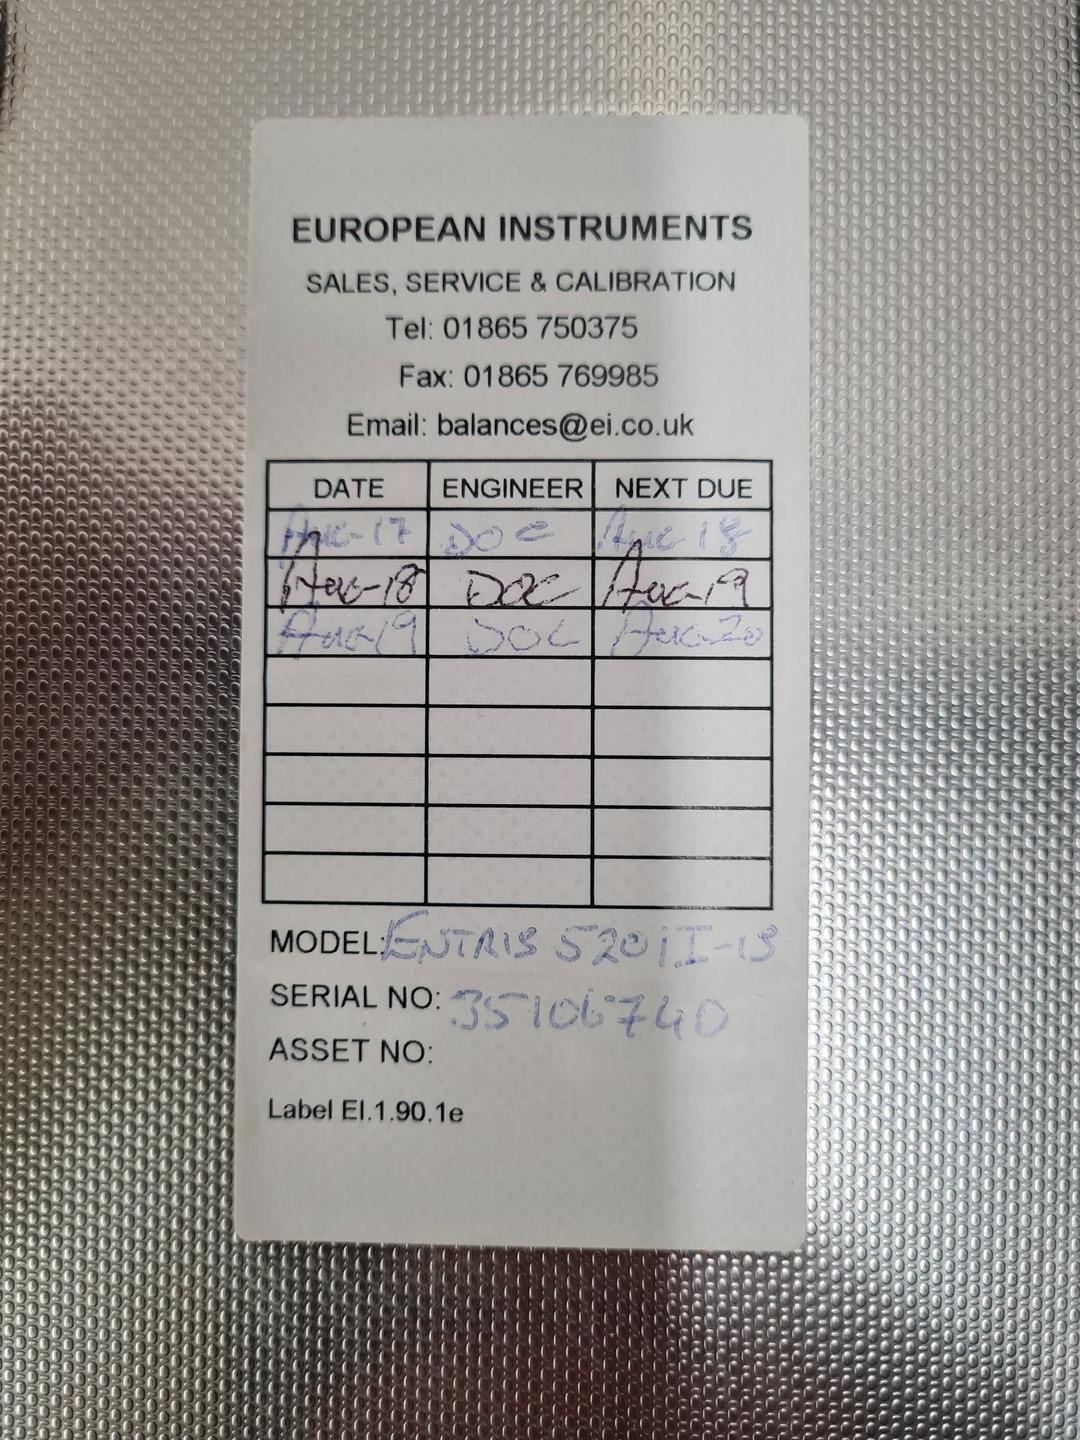 EUROPEAN INSTRUMENTS
SALES, SERVICE & CALIBRATION
Tel: 01865 750375
Fax: 01865 769985
Email: balances@ei.co.uk
DATE ENGINEER NEXT DUE
Aug-17 DOC Aug-18
Aug-18 DOC Aug-19
Aug-19 DOC Aug-20
MODEL: ENTRIS 5201I-1S
SERIAL NO: 35106740
ASSET NO:
Label EI.1.90.1e